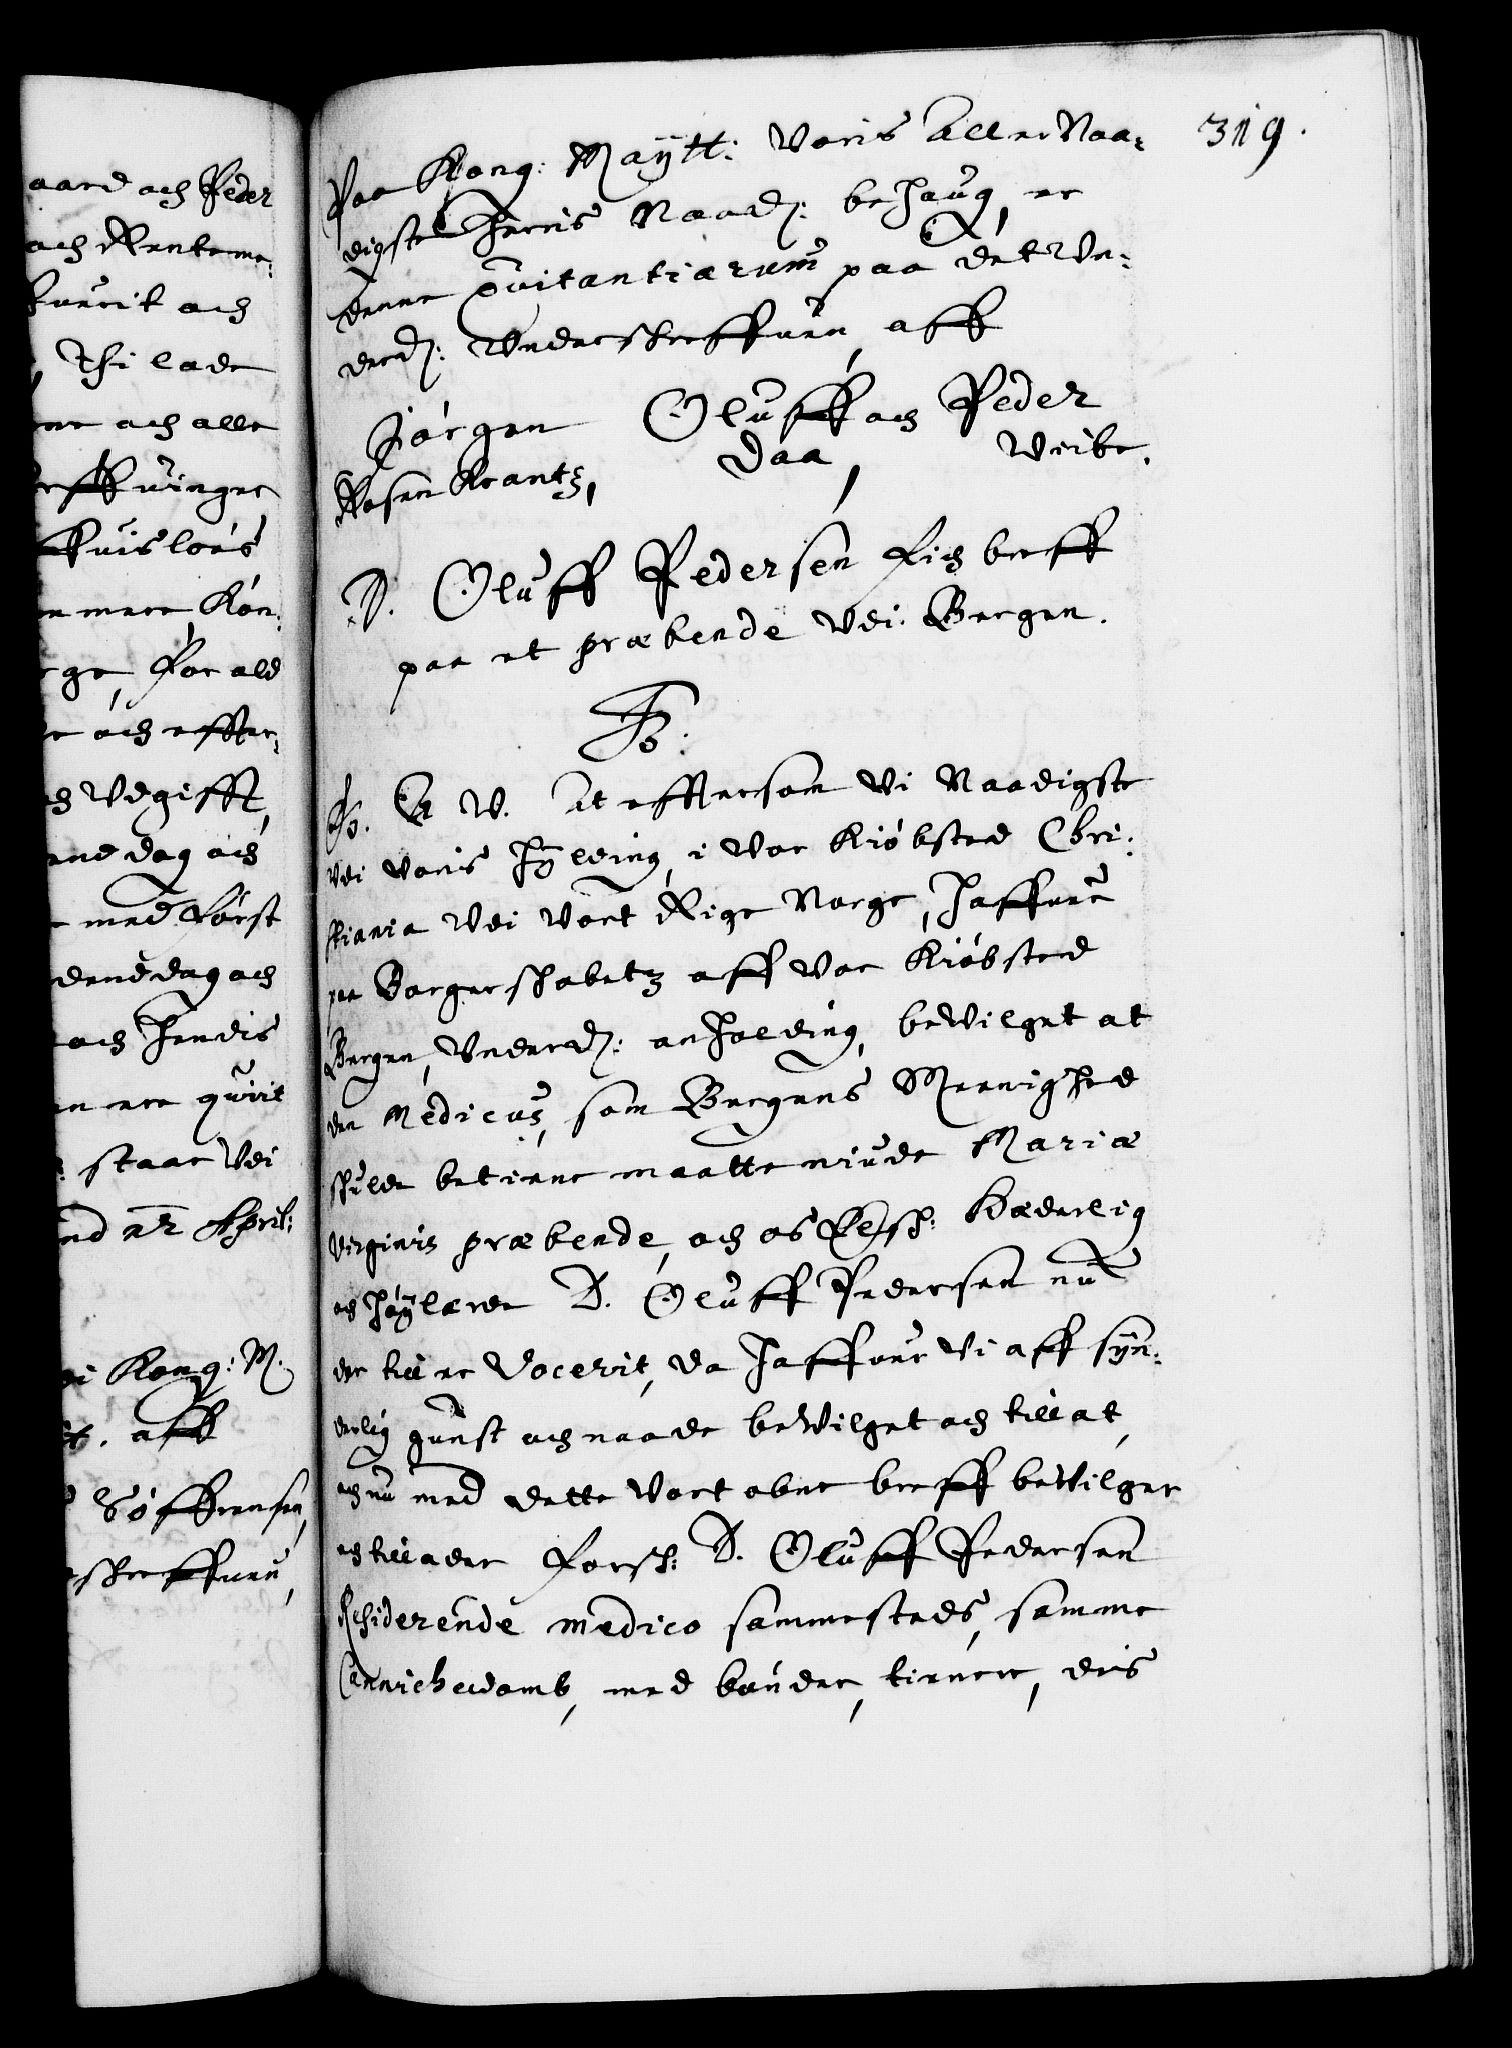 aard och Peder
och Renteme¬
huercit och
, Thi lade
me och alle
effuinger
ffuisløes
n mere, Kon:
rge, for ald
r och effter¬
ch Udgifft,
end dag och
med først
dend dag och
och hendis
n ere quiit
: staar Udi
nd
April:
i Kong: M.
aff
Søffrensen,
skreffuen,
319.
Paa Kong: Maÿtt: Voris Aller Naa¬
digste Herris Naad: behaug, er
denne Quitantiarum paa det Un¬
derd: Underskreffuen, aff
Jörgen Oluff och Peder
Rosenkrantz, Daa, Wibe.
D. Oluff Pedersen fich breff
paa et præbende Udi Bergen.
F3:
C4. G. A. W. At efftersom Vi Naadigste
Udi Voris hÿlding, i Vor Kiøbsted Chri¬
stiania Udi Vort Rige Norge, haffuer
paa Borgerskabetz aff Vor Kiøbsted
Bergen, Underd: anholding, beVilget at
den Medicus, som Bergens Meenighed
skulde betiene maatte niude Mariæ
Virginis præbende, och os Elsk: Hæderlig
och Høÿlærde D. Oluff Pedersen nu
der till er Vocerit, da haffuer Vi aff sÿn¬
derlig gunst och naade beVilget och tillat,
och nu med dette Vort obne breff beVilger
och tillader forsk: D. Oluff Pedersen
Rehiderende medico sammesteds, samme
Cannichedomb, med bønder, tienere, dris